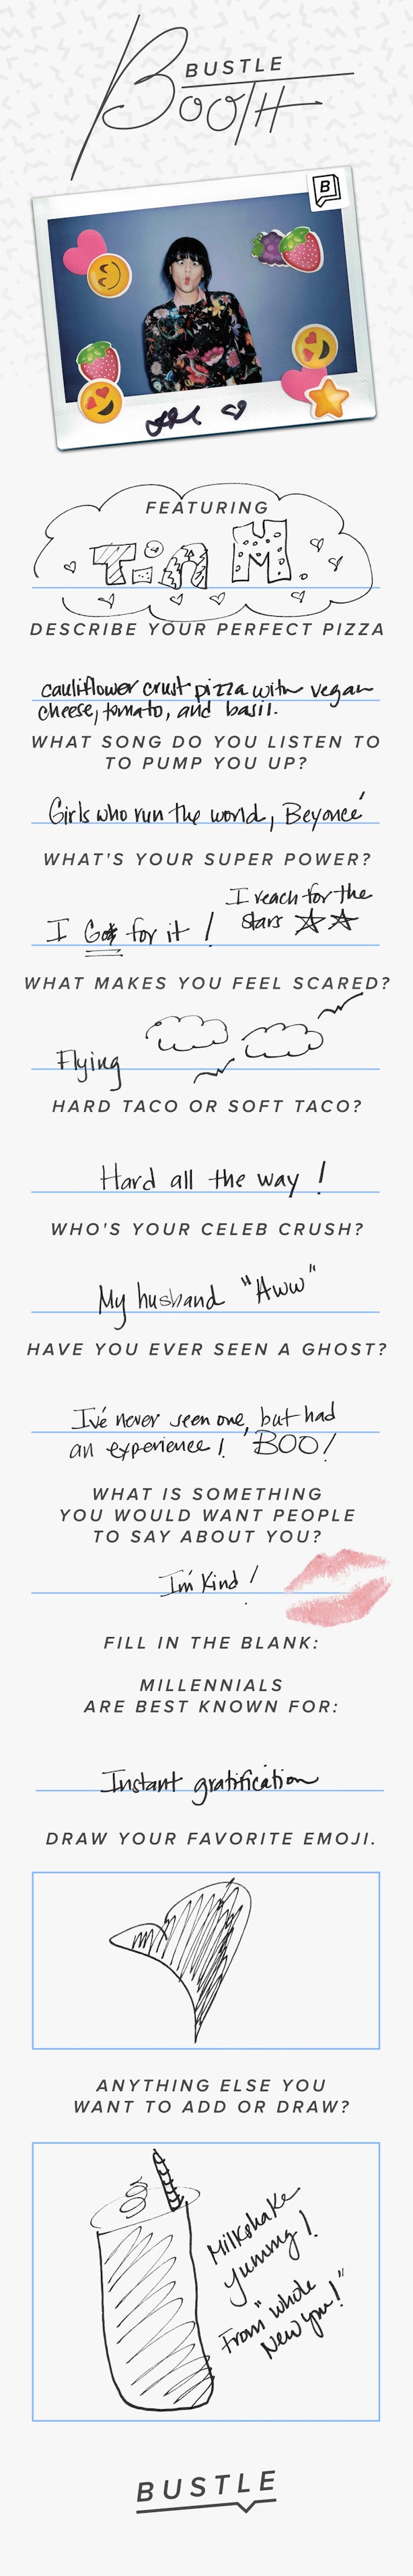 BUSTLE
BOOTH
B
FEATURING
TIA M.
DESCRIBE YOUR PERFECT PIZZA
cauliflower crust pizza with vegan
cheese, tomato, and basil.
WHAT SONG DO YOU LISTEN TO
TO PUMP YOU UP?
Girls who run the world, Beyoncé
WHAT'S YOUR SUPER POWER?
I reach for the
stars
I Go for it!
WHAT MAKES YOU FEEL SCARED?
Flying
HARD TACO OR SOFT TACO?
Hard all the way!
WHO'S YOUR CELEB CRUSH?
My husband "Aww"
HAVE YOU EVER SEEN A GHOST?
I've never seen one, but had
an experience! BOO!
WHAT IS SOMETHING
YOU WOULD WANT PEOPLE
TO SAY ABOUT YOU?
I'm Kind!
FILL IN THE BLANK:
MILLENNIALS
ARE BEST KNOWN FOR:
Instant gratification
DRAW YOUR FAVORITE EMOJI.
ANYTHING ELSE YOU
WANT TO ADD OR DRAW?
Milkshake
Yummy!
From "whole
New you!"
BUSTLE